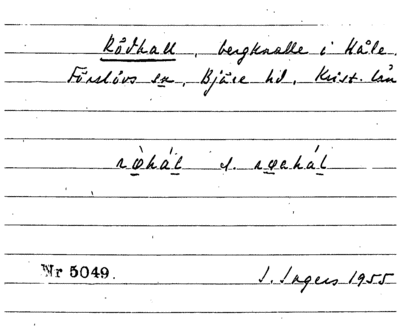 Rödhall, bergknalle i Kåle.
Förslövs sn, Bjäre hd, Krist. län
røhál l. røehál
Nr 5049. J. Ingers 1955